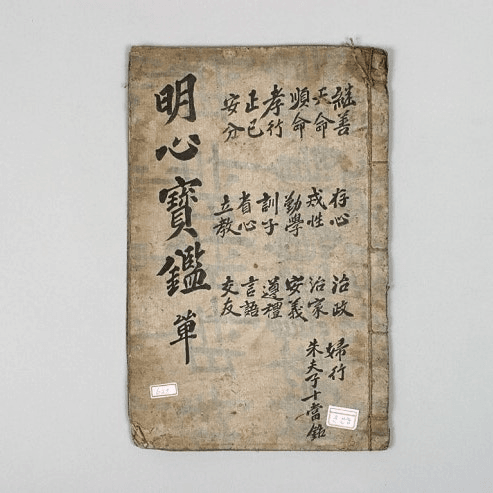 繼善 存心 治政 婦行
天命 戒性 治家 朱夫子十當銘
順命 勤學 安義
孝行 訓子 遵禮
正己 省心 言語
安分 立教 交友
明心寶鑑 單